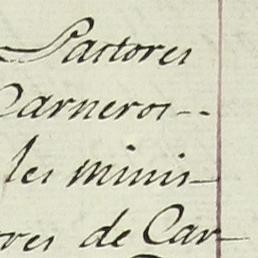 Pastores
Carneros--
les minis-
res de Car-